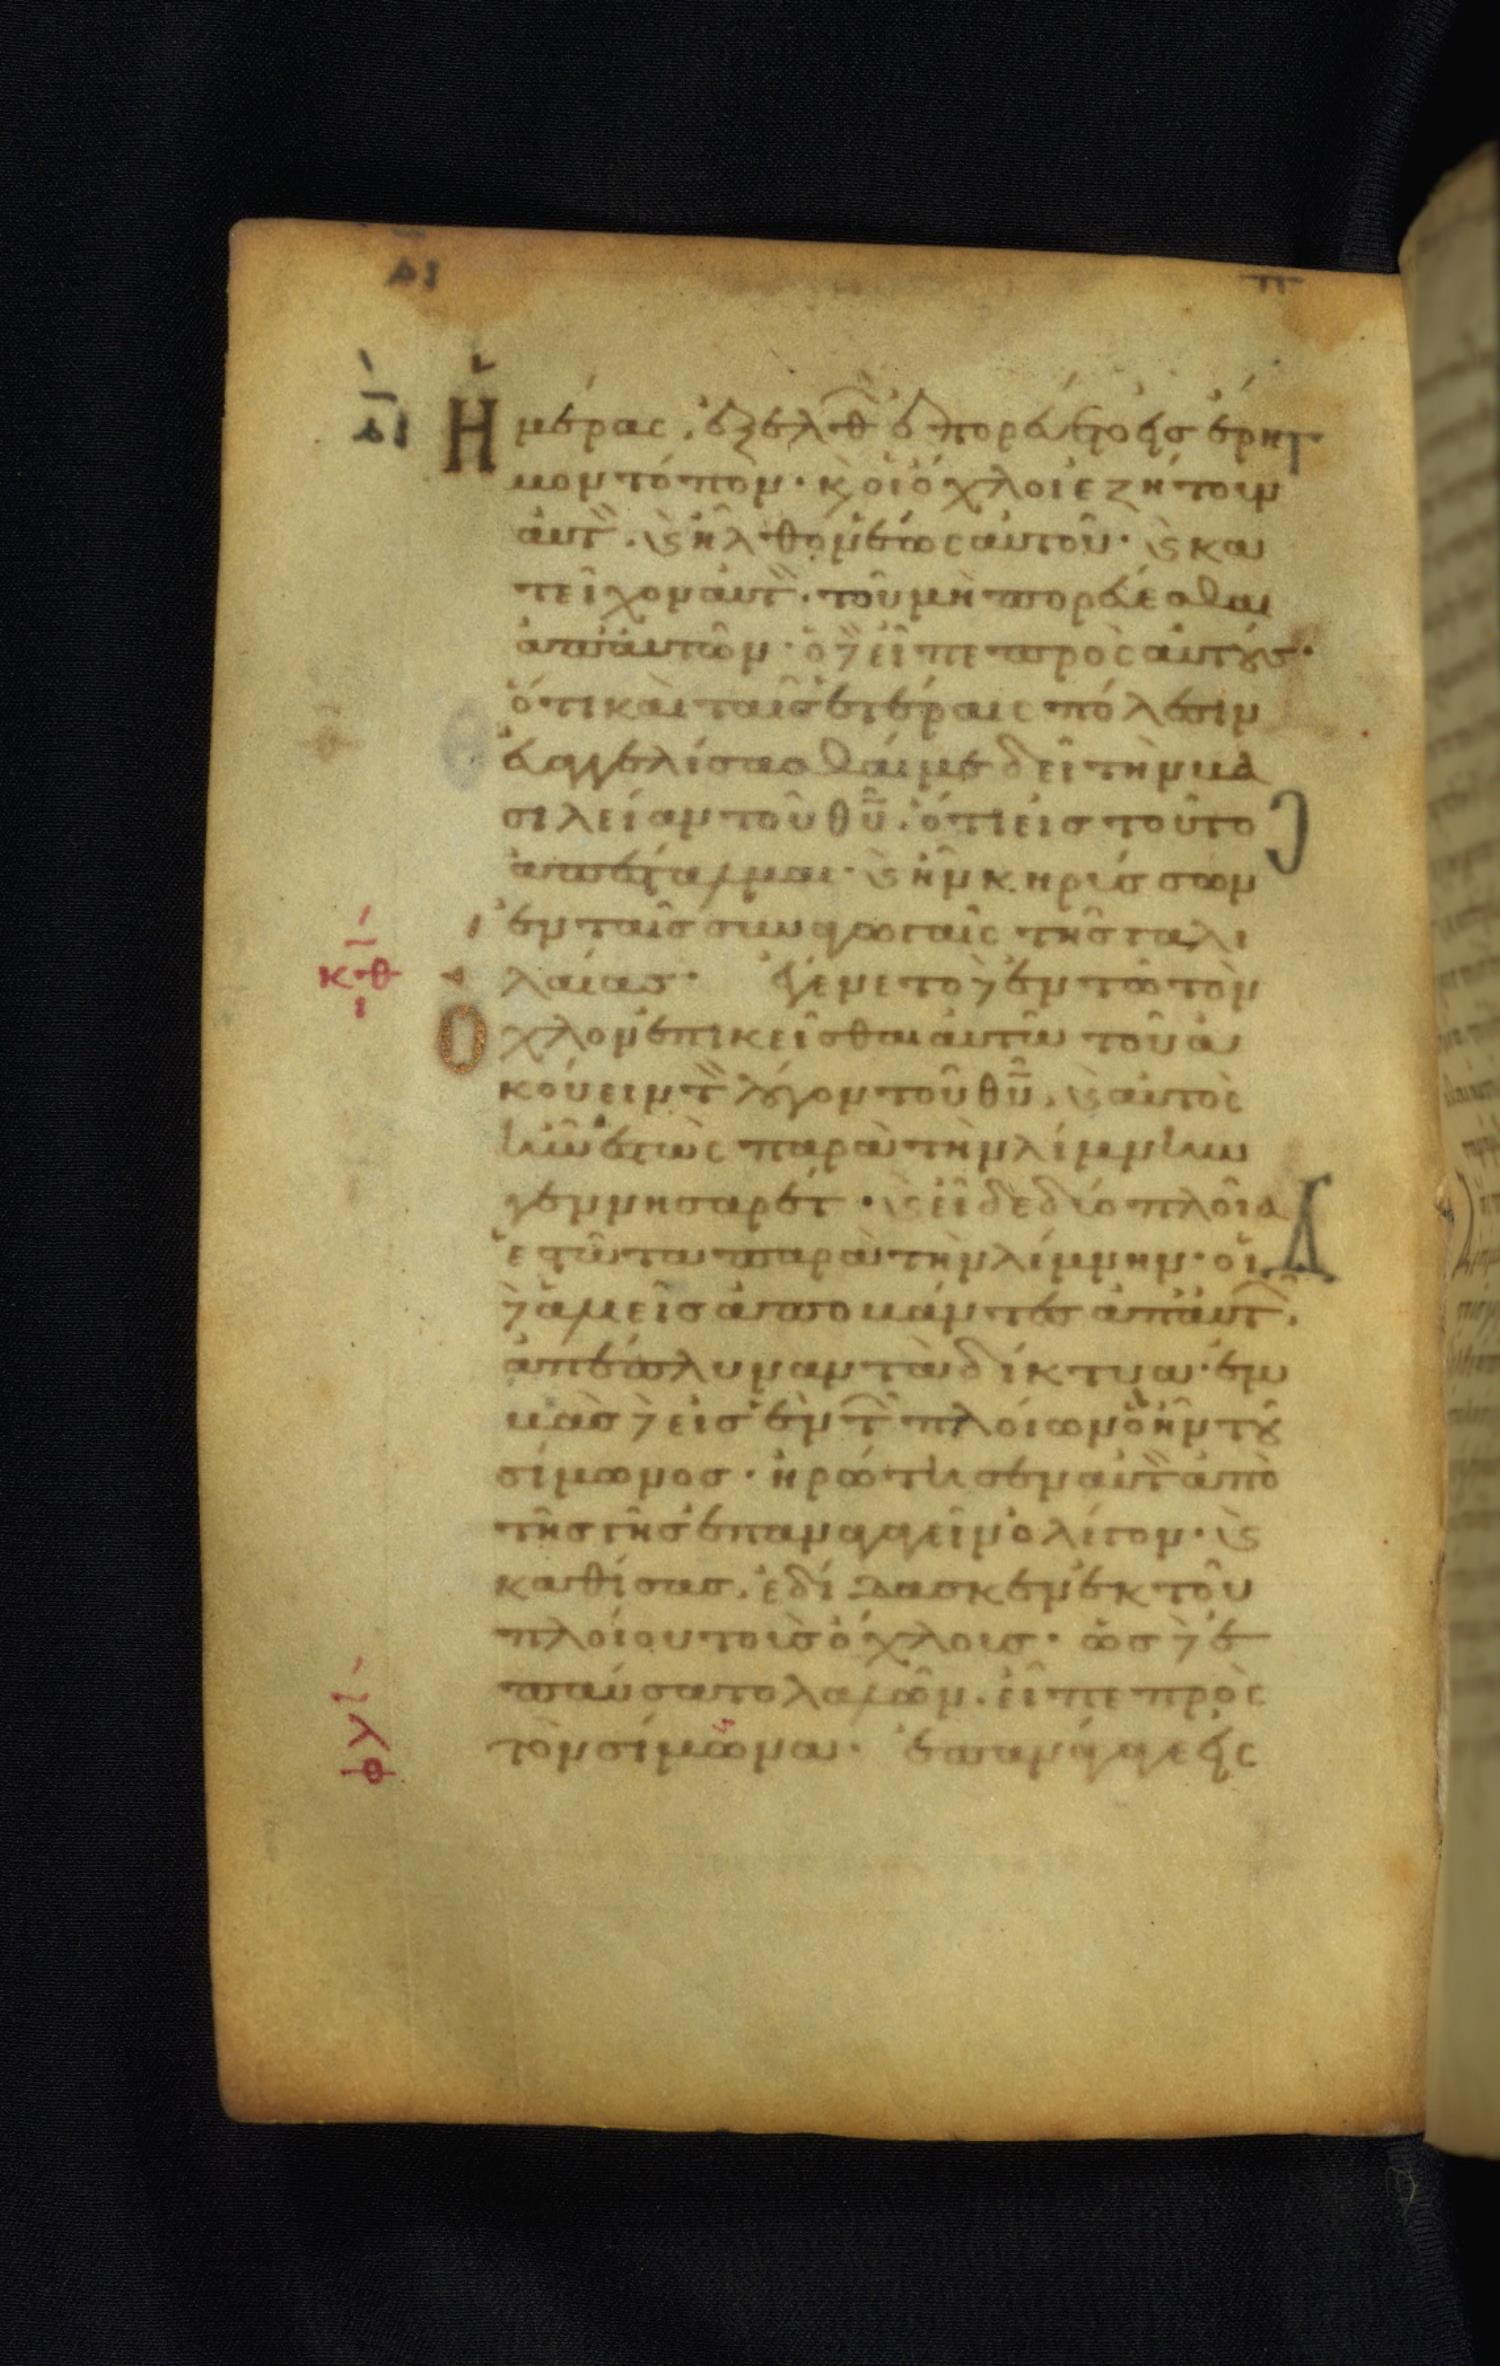 ἡμέρας, ἐξελθ ἐπορεύθη εἰς ἔρη
μον τόπον· κ οἱ ὄχλοι ἐζήτουν
αὐτ. κ ἦλθον ἕως αὐτοῦ· κ κα
τεῖχον αὐτ. τοῦ μὴ πορεύεσθαι
ἀπ' αὐτῶν· ὁ δ εἶπε πρὸς αὐτούς·
ὅτι καὶ ταῖς ἑτέραις πόλεσιν
εὐαγγελίσασθαί με δεῖ τὴν βα
σιλείαν τοῦ θυ. ὅτι εἰς τοῦτο
ἀπέσταλμαι· κ ἦν κηρύσσων
ἐν ταῖς συναγωγαῖς τῆς γαλι
λαίας· ἐγένετο δ ἐν τῶ τὸν
ὄχλον ἐπικεῖσθαι αὐτῶ τοῦ ἀ
κούειν τ λόγον τοῦ θυ. κ αὐτὸς
ἦν ἑστὼς παρὰ τὴν λίμνην
γεννησαρέτ· κ εἶδε δύο πλοῖα
ἑστῶτα παρὰ τὴν λίμνην· οἱ
δ ἁλιεῖς ἀποβάντες ἀπ' αὐτ.
ἀπέπλυναν τὰ δίκτυα· ἐμ
βὰς δ εἰς ἓν τ πλοίων ὃ ἦν τοῦ
σίμωνος· ἠρώτησεν αὐτ ἀπὸ
τῆς γῆς ἐπαναγαγεῖν ὀλίγον· κ
καθίσας, ἐδίδασκεν ἐκ τοῦ
πλοίου τοὺς ὄχλους· ὡς δ ἐ
παύσατο λαλῶν. εἶπε πρὸς
τὸν σίμωνα· ἐπανάγαγε εἰς